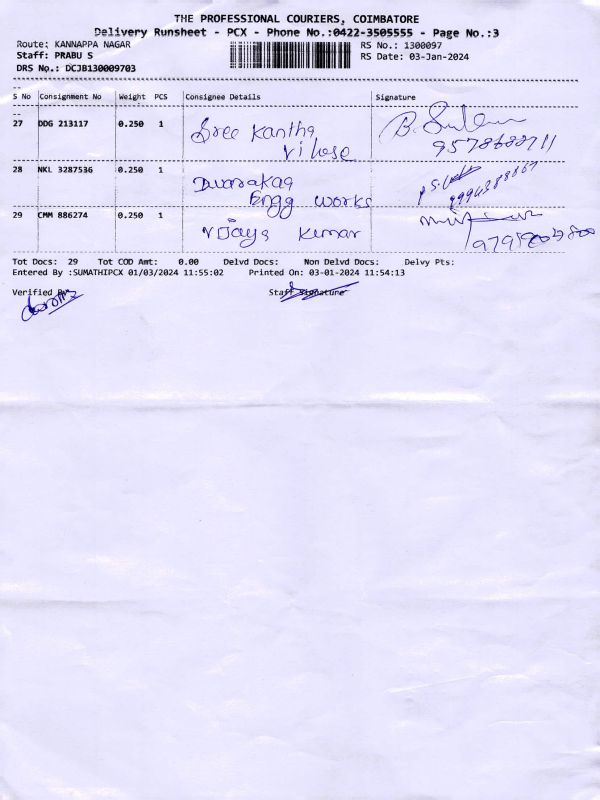 THE PROFESSIONAL COURIERS, COIMBATORE
Delivery Runsheet - PCX - Phone No.:0422-3505555 - Page No.:3
Route: KANNAPPA NAGAR
RS No.: 1300097
Staff: PRABU S
RS Date: 03-Jan-2024
DRS No.: DCJB130009703
S No Consignment No Weight PCS Consignee Details Signature
27 DDG 213117 0.250 1 Sree Kantha
Vilase
28 NKL 3287536 0.250 1 Dwarakaa
Engg works
29 CMM 886274 0.250 1 Vijaya Kumar
Tot Docs: 29 Tot COD Amt: 0.00 Delvd Docs: Non Delvd Docs: Delvy Pts:
Entered By :SUMATHIPCX 01/03/2024 11:55:02 Printed On: 03-01-2024 11:54:13
Verified By
Staff Signature